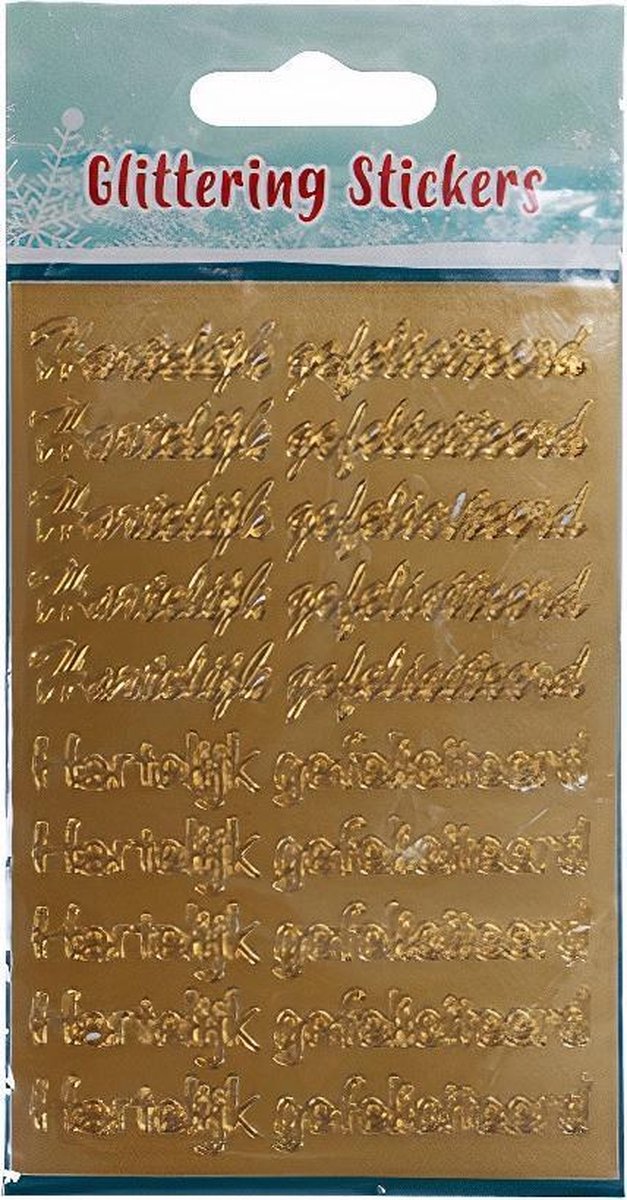 Glittering Stickers
Hartelijk gefeliciteerd
Hartelijk gefeliciteerd
Hartelijk gefeliciteerd
Hartelijk gefeliciteerd
Hartelijk gefeliciteerd
Hartelijk gefeliciteerd
Hartelijk gefeliciteerd
Hartelijk gefeliciteerd
Hartelijk gefeliciteerd
Hartelijk gefeliciteerd